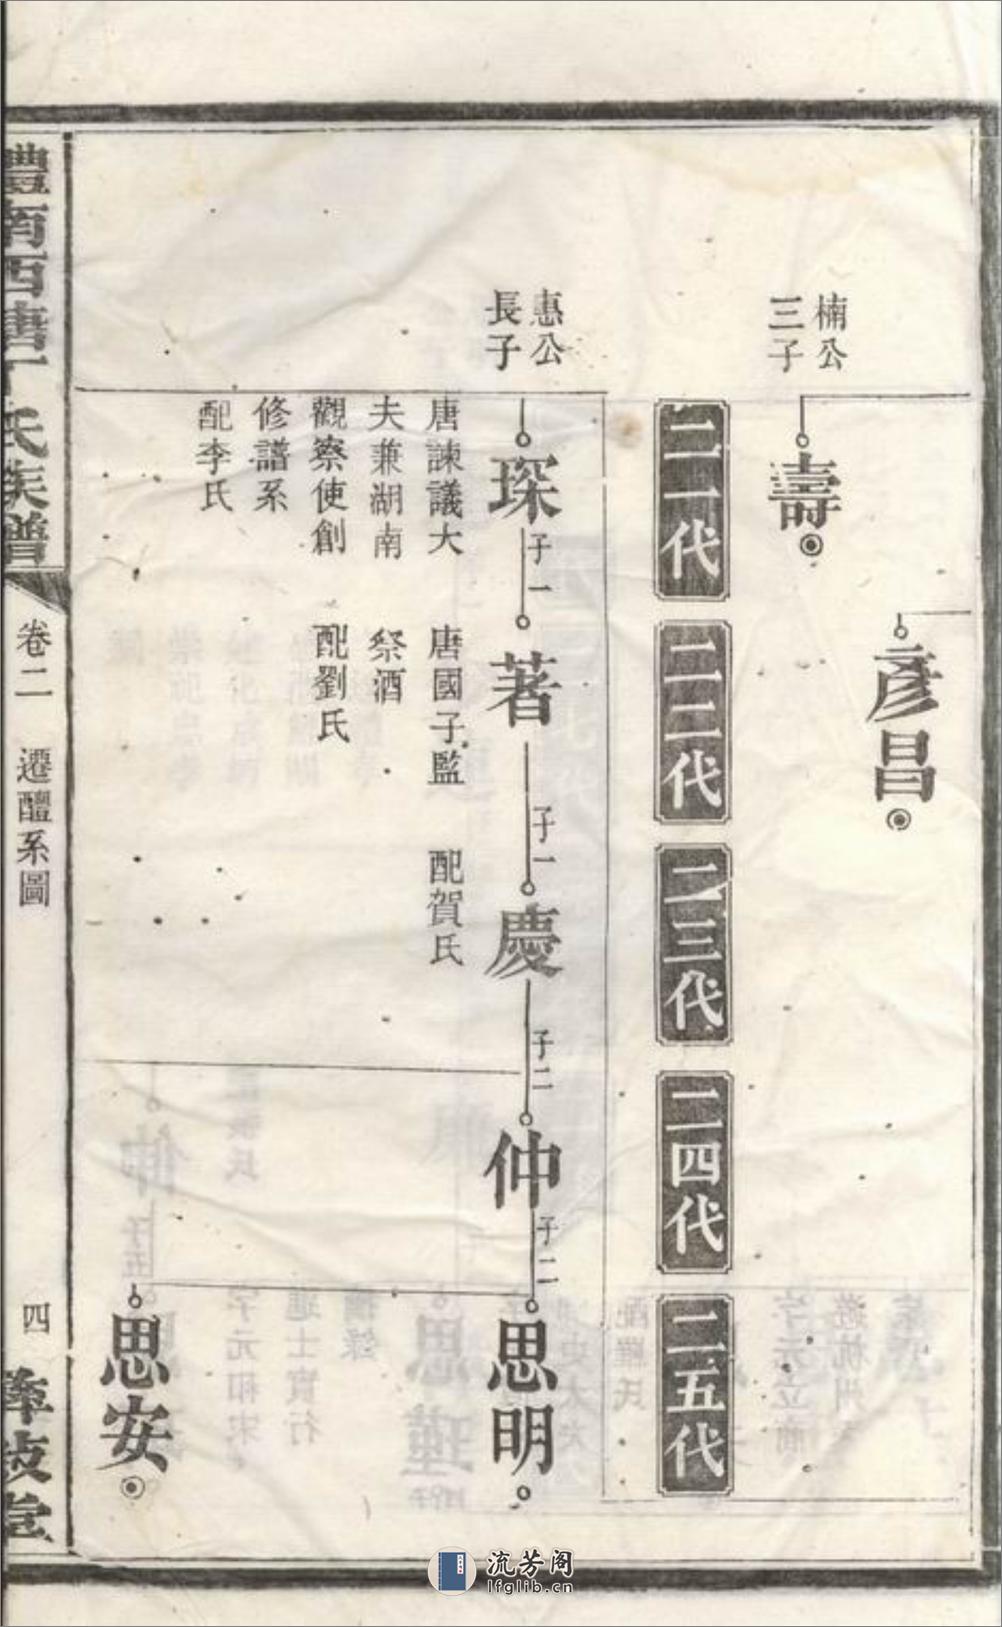 彥昌
楠公
三子
壽
二一代
二二代
二三代
二四代
二五代
惠公
長子
琛
子一
唐諫議大
夫兼湖南
觀察使創
修譜系
配李氏
著
子一
唐國子監
祭酒
配劉氏
慶
子二
配賀氏
仲
子二
思明
思安
南西塘丁氏族譜
卷二
遷醴系圖
四
流芳阁
lfglib.cn